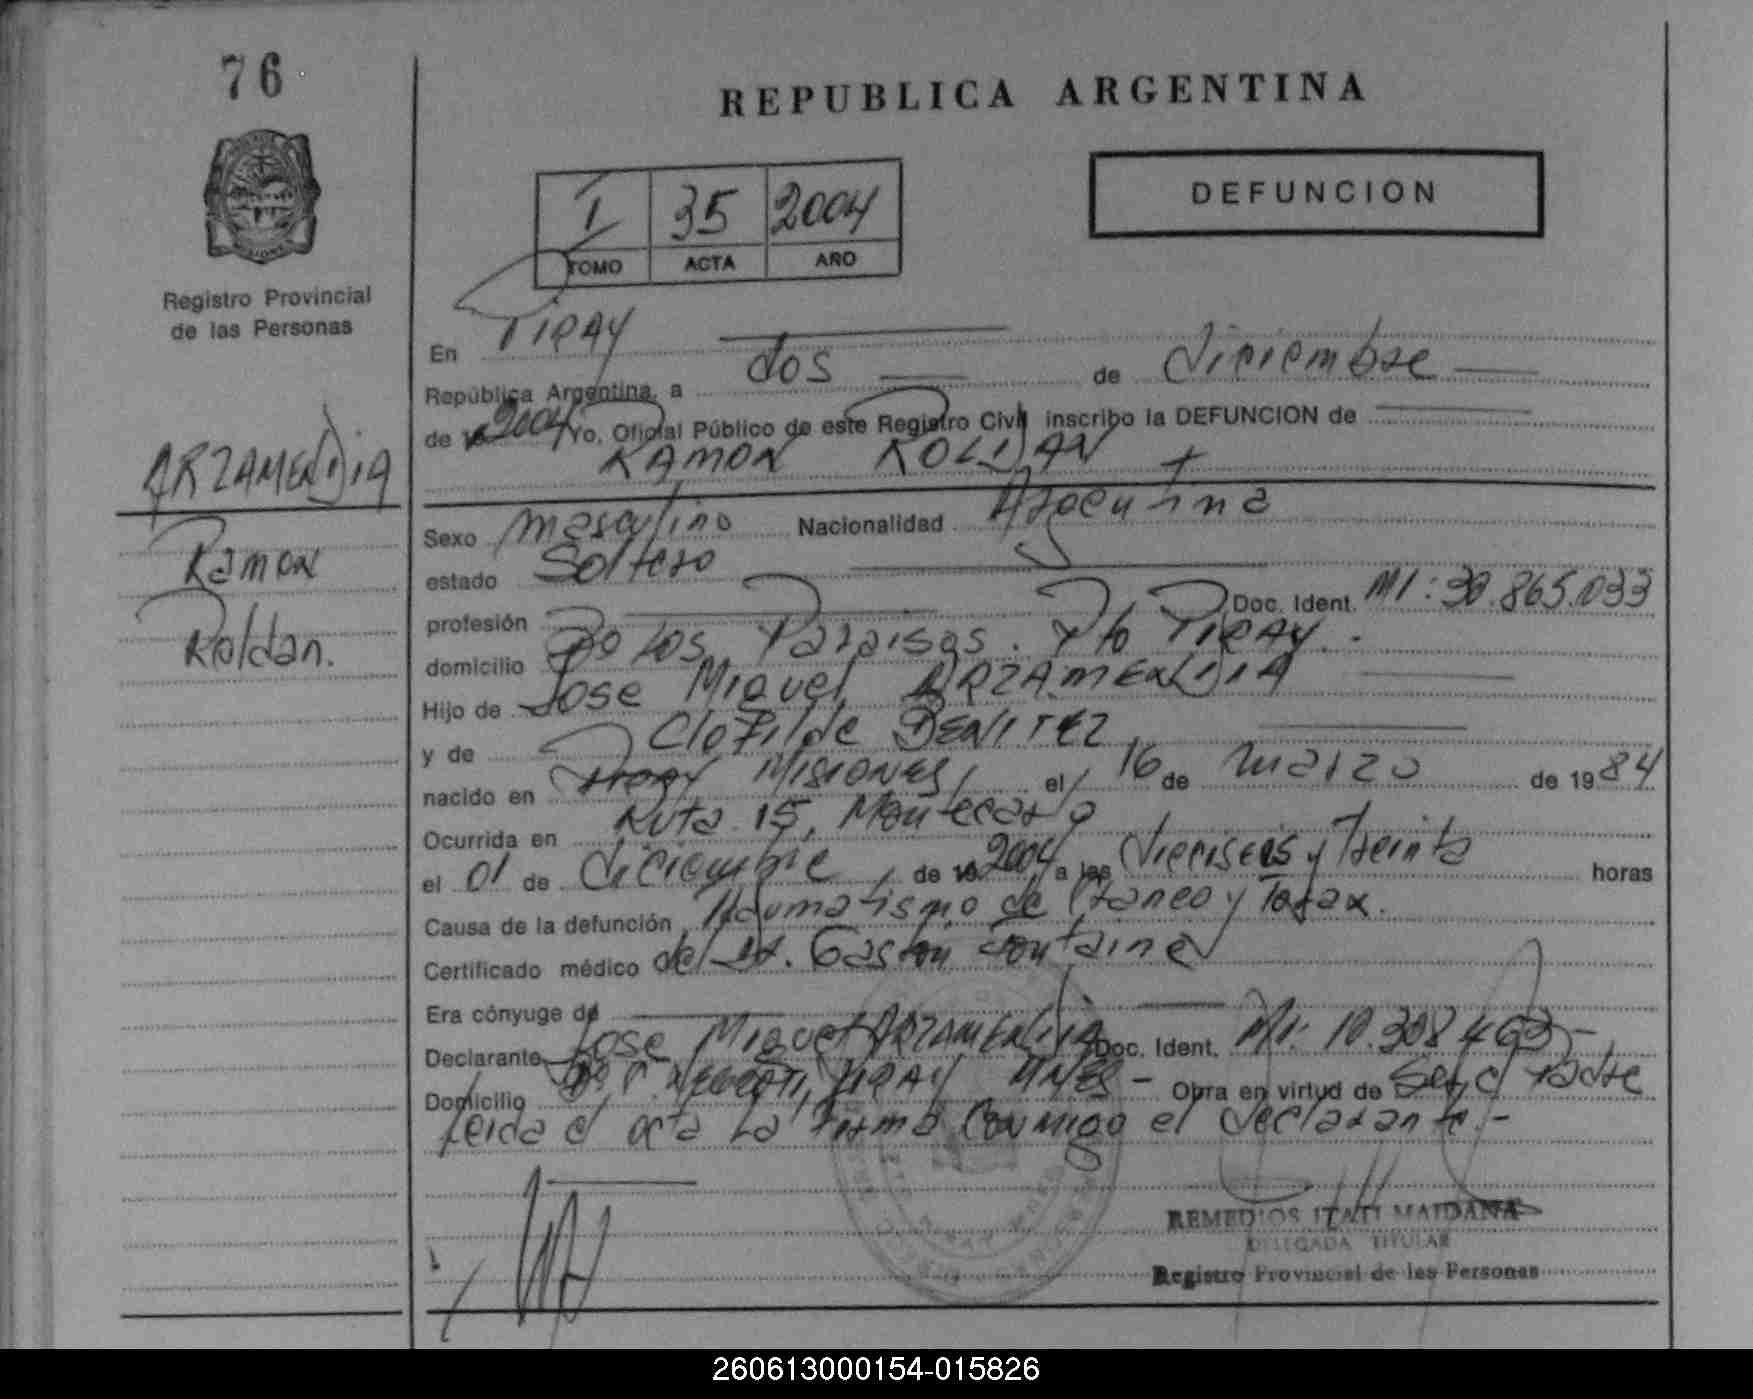 76
REPUBLICA ARGENTINA
DEFUNCION
I 35 2004
TOMO ACTA AÑO
Registro Provincial
de las Personas
ARZAMENDIA
Ramon
Roldan.
En PIRAY
República Argentina, a dos de diciembre
de 19 2004 Yo, Oficial Público de este Registro Civil inscribo la DEFUNCION de
RAMON ROLDAN
Sexo masculino Nacionalidad Argentina
estado Soltero
profesión Doc. Ident. MI: 30.865.033
domicilio Bo Los Paraisos. Pto PIRAY.
Hijo de Jose Miguel ARZAMENDIA
y de Clotilde BENITEZ
nacido en PIRAY MISIONES, el 16 de marzo de 1984
Ocurrida en Ruta 15, Montecarlo
el 01 de diciembre, de 19 2004 a las dieciseis y treinta horas
Causa de la defunción Traumatismo de Craneo y Torax.
Certificado médico del Dr. Gaston Fontaine
Era cónyuge de
Declarante Jose Miguel ARZAMENDIA Doc. Ident. MI: 10.308.463-
Domicilio PIRAY MNES- Obra en virtud de Ser el Padre
Leida el acta La Firma Conmigo el declarante.-
REMEDIOS ITATI MAIDANA
DELEGADA TITULAR
Registro Provincial de las Personas
260613000154-015826